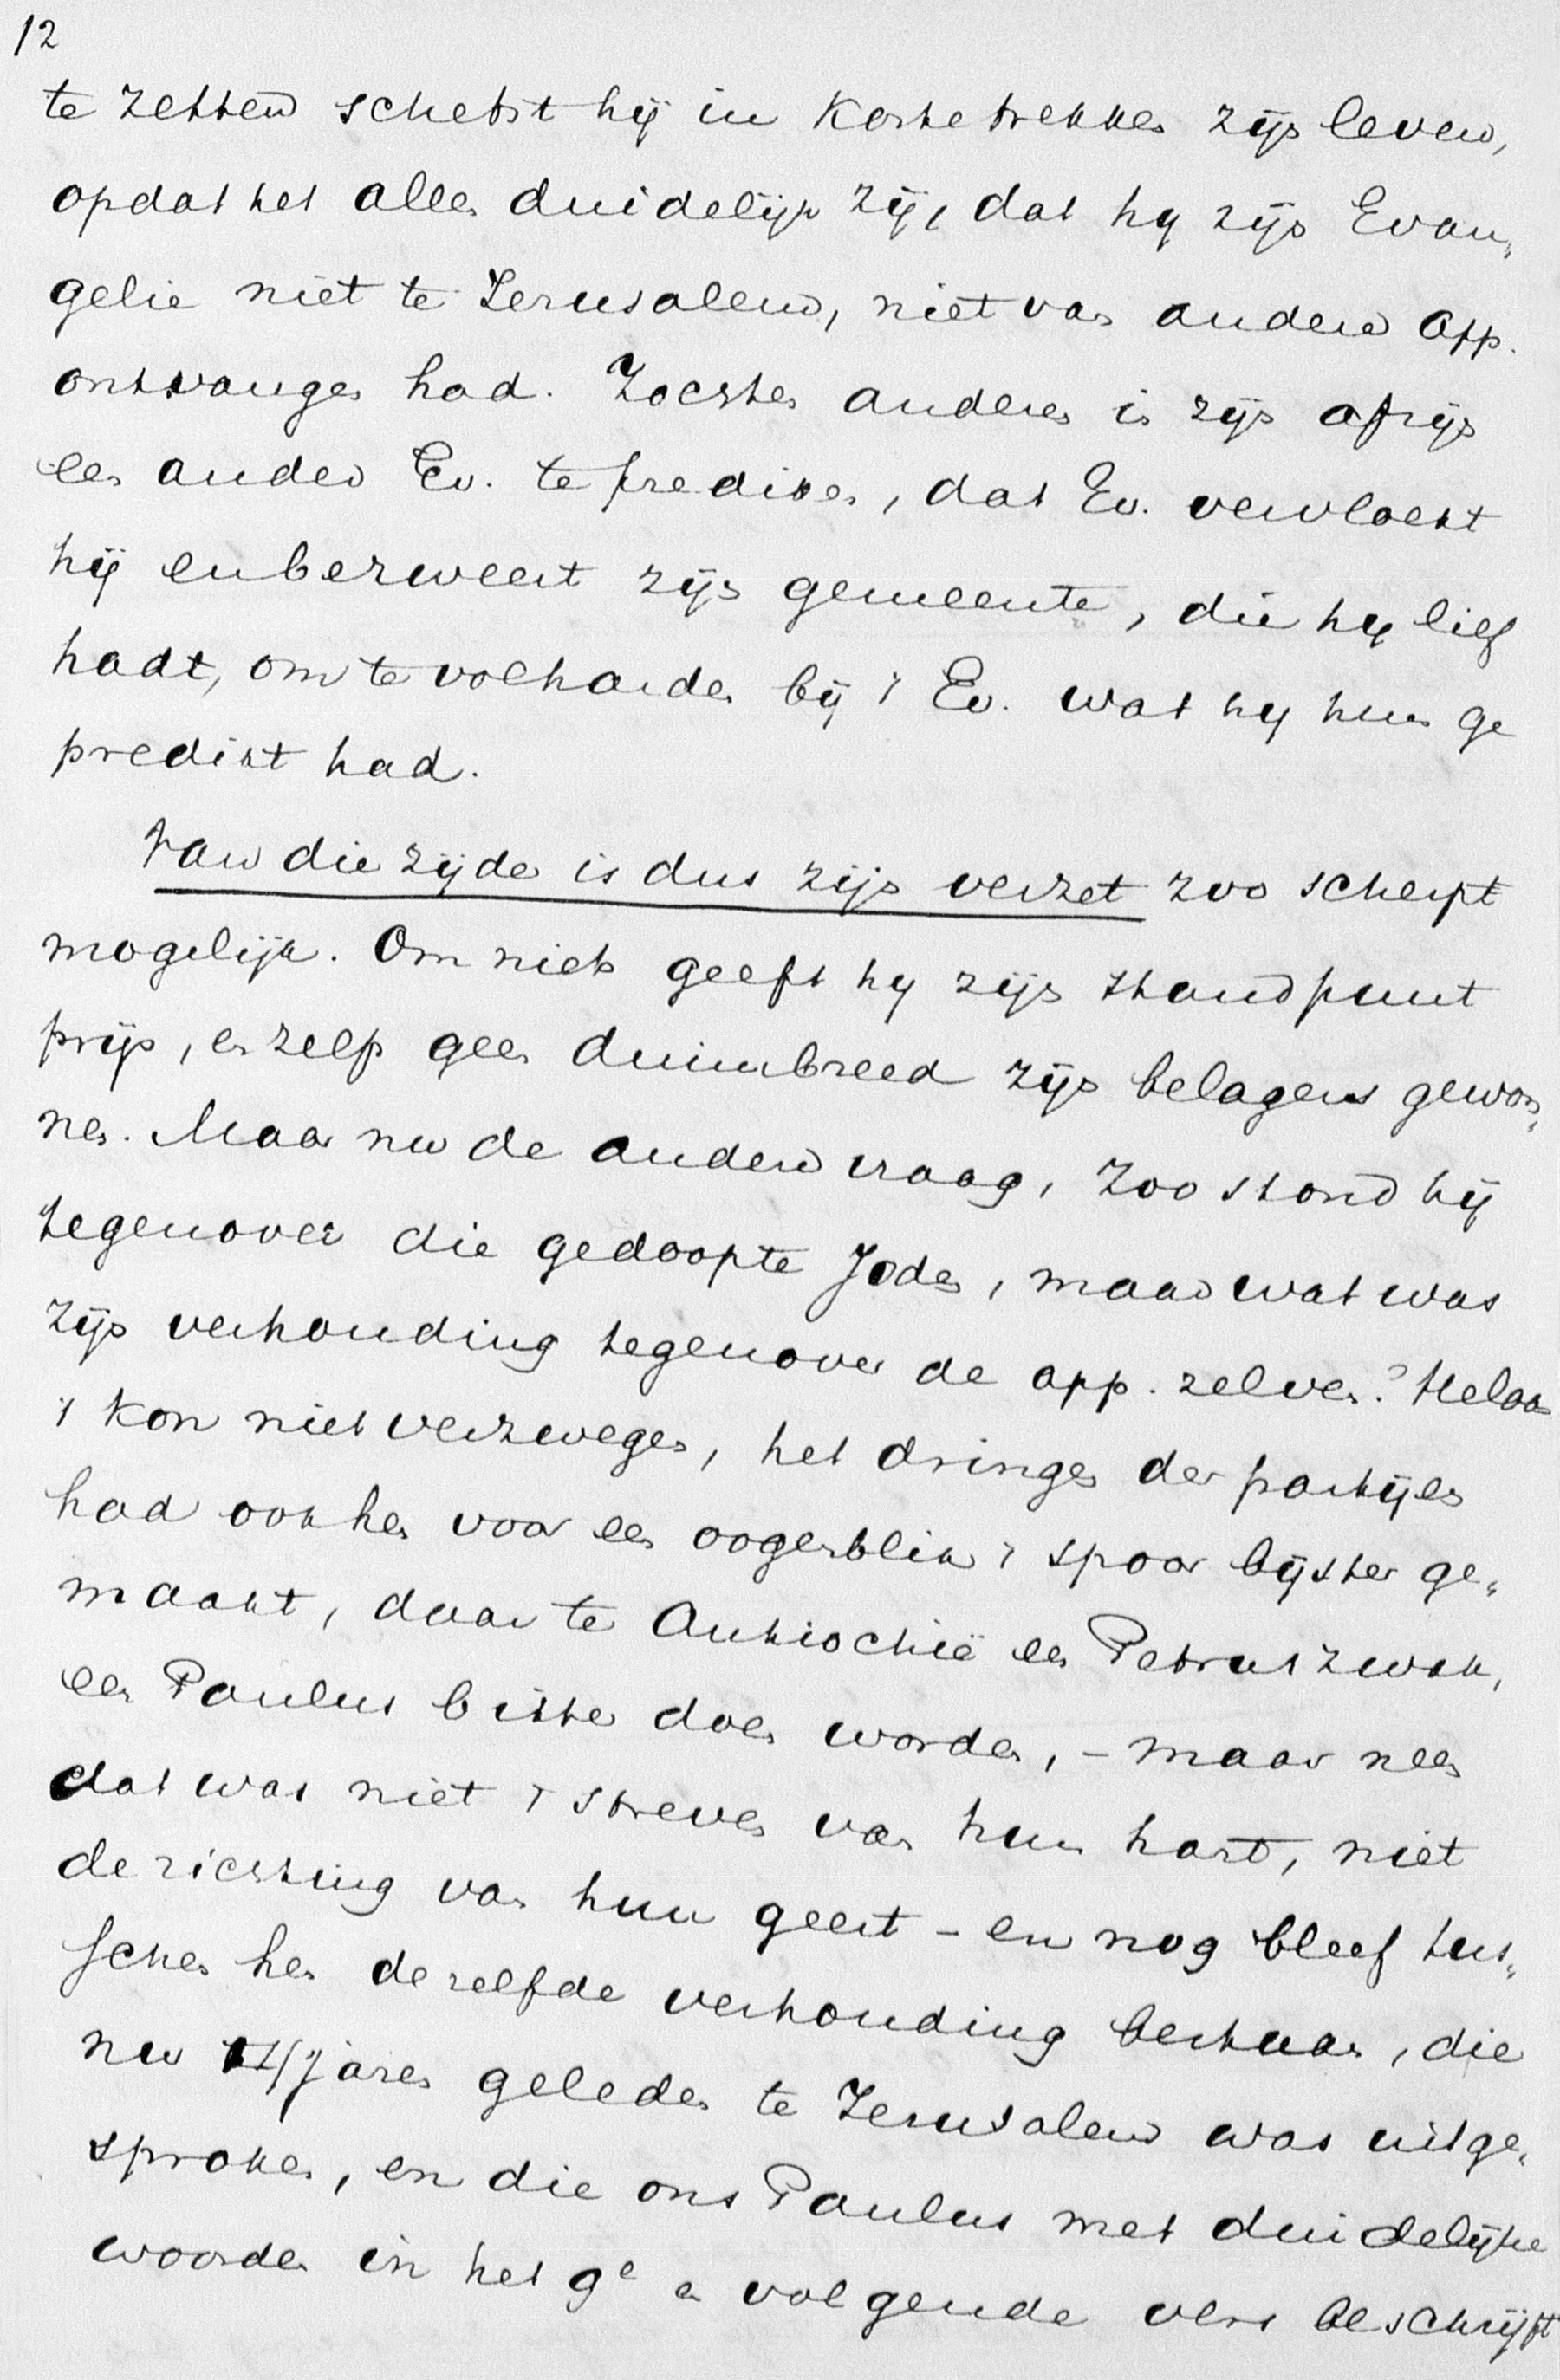 12
te zetten schetst hij in korte trekken zijn leven,
opdat het allen duidelijk zij, dat hij zijn Evan„
gelie niet te Jerusalem, niet van andere app.
ontvangen had. Zochten anderen in zijn afzijn
een ander Ev. te prediken, dat Ev. vervloekt
hij en bezweert zijn gemeente, die hij lief
hadt, om te volharden bij 't Ev. wat hij hun ge
predikt had.
Van die zijde is dus zijn verzet zoo scherpt
mogelijk. Om niets geeft hij zijn standpunt
prijs, en zelfs geen duimbreed zijn belagers gewon„
nen. Maar nu de andere vraag, Zoo stond hij
tegenover die gedoopte Joden, maar wat was
zijn verhouding tegenover de app. zelven? Helaas
't kon niet verzwegen, het dringen der partijen
had ook hen voor een oogenblik 't spoor bijster ge„
maakt, daar te Antiochië een Petrus zwak,
een Paulus bitter doen worden, - maar neen
dat was niet 't streven van hun hart, niet
de richting van hun geest - en nog bleef tus„
schen hen dezelfde verhouding bestaan, die
nu 14 jaren geleden te Jerusalem was uitge„
sproken, en die ons Paulus met duidelijke
woorden in het 9e en volgende vers beschrijft